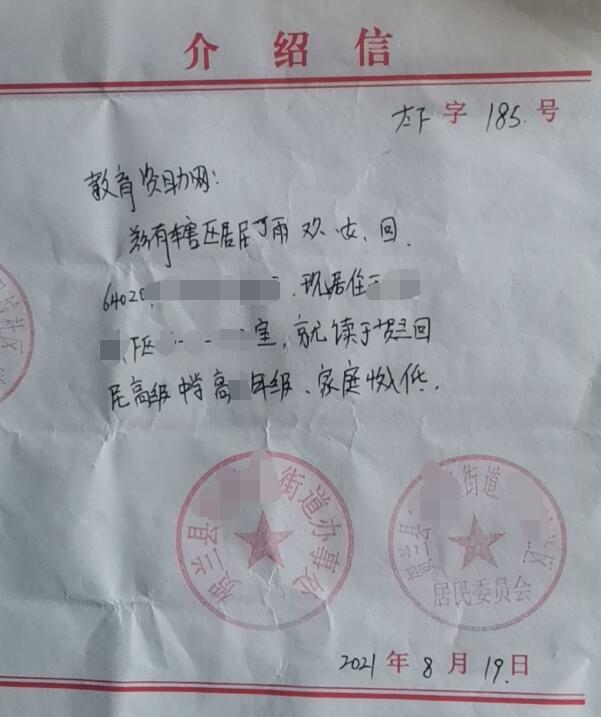 介绍信
太下字185.号
教育资助网:
兹有辖区居民丁雨欢、女、回、
64020 ，现居住于
下区 室，就读于贺兰回
民高级中学高 年级、家庭收入低.
贺兰县 街道办事处
贺兰县 街道 区
居民委员会
2021年8月19.日